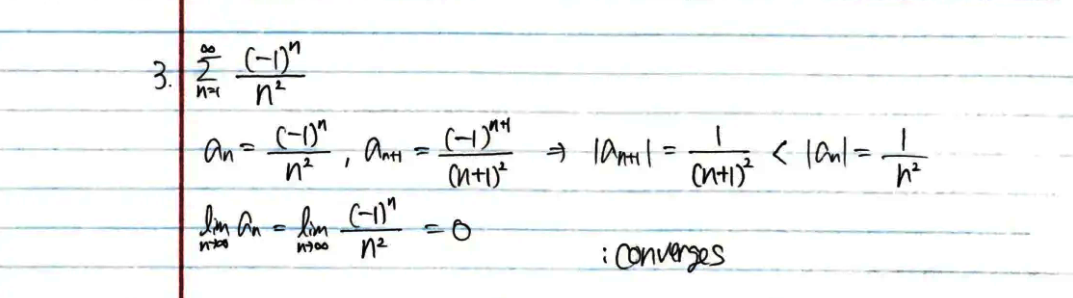 3. $\sum_{n=1}^{\infty} \frac{(-1)^n}{n^2}$
$a_n = \frac{(-1)^n}{n^2}, a_{n+1} = \frac{(-1)^{n+1}}{(n+1)^2} \Rightarrow |a_{n+1}| = \frac{1}{(n+1)^2} < |a_n| = \frac{1}{n^2}$
$\lim_{n \to \infty} a_n = \lim_{n \to \infty} \frac{(-1)^n}{n^2} = 0$
: converges